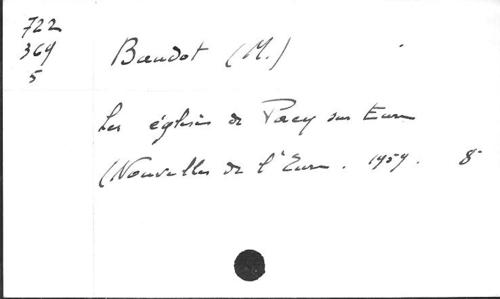 722
369
5
Baudot (M.)
Les églises de Pacy sur Eure
(Nouvelles de l'Eure. 1959. 8°